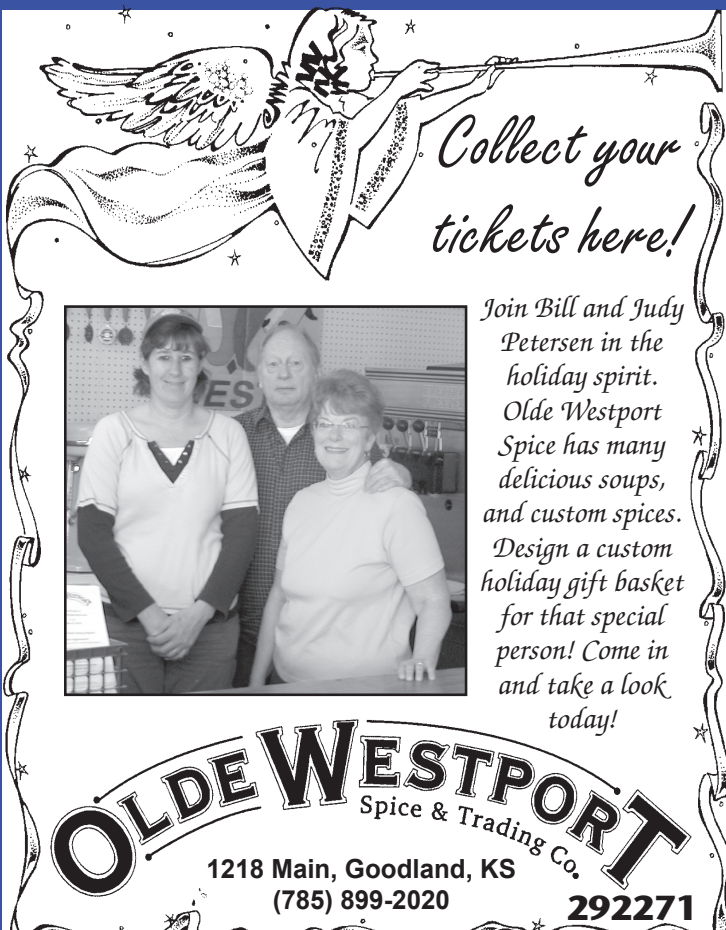 Collect your
tickets here!
Join Bill and Judy
Petersen in the
holiday spirit.
Olde Westport
Spice has many
delicious soups,
and custom spices.
Design a custom
holiday gift basket
for that special
person! Come in
and take a look
today!
ES
OLDE WESTPORT
Spice & Trading Co.
1218 Main, Goodland, KS
(785) 899-2020
292271